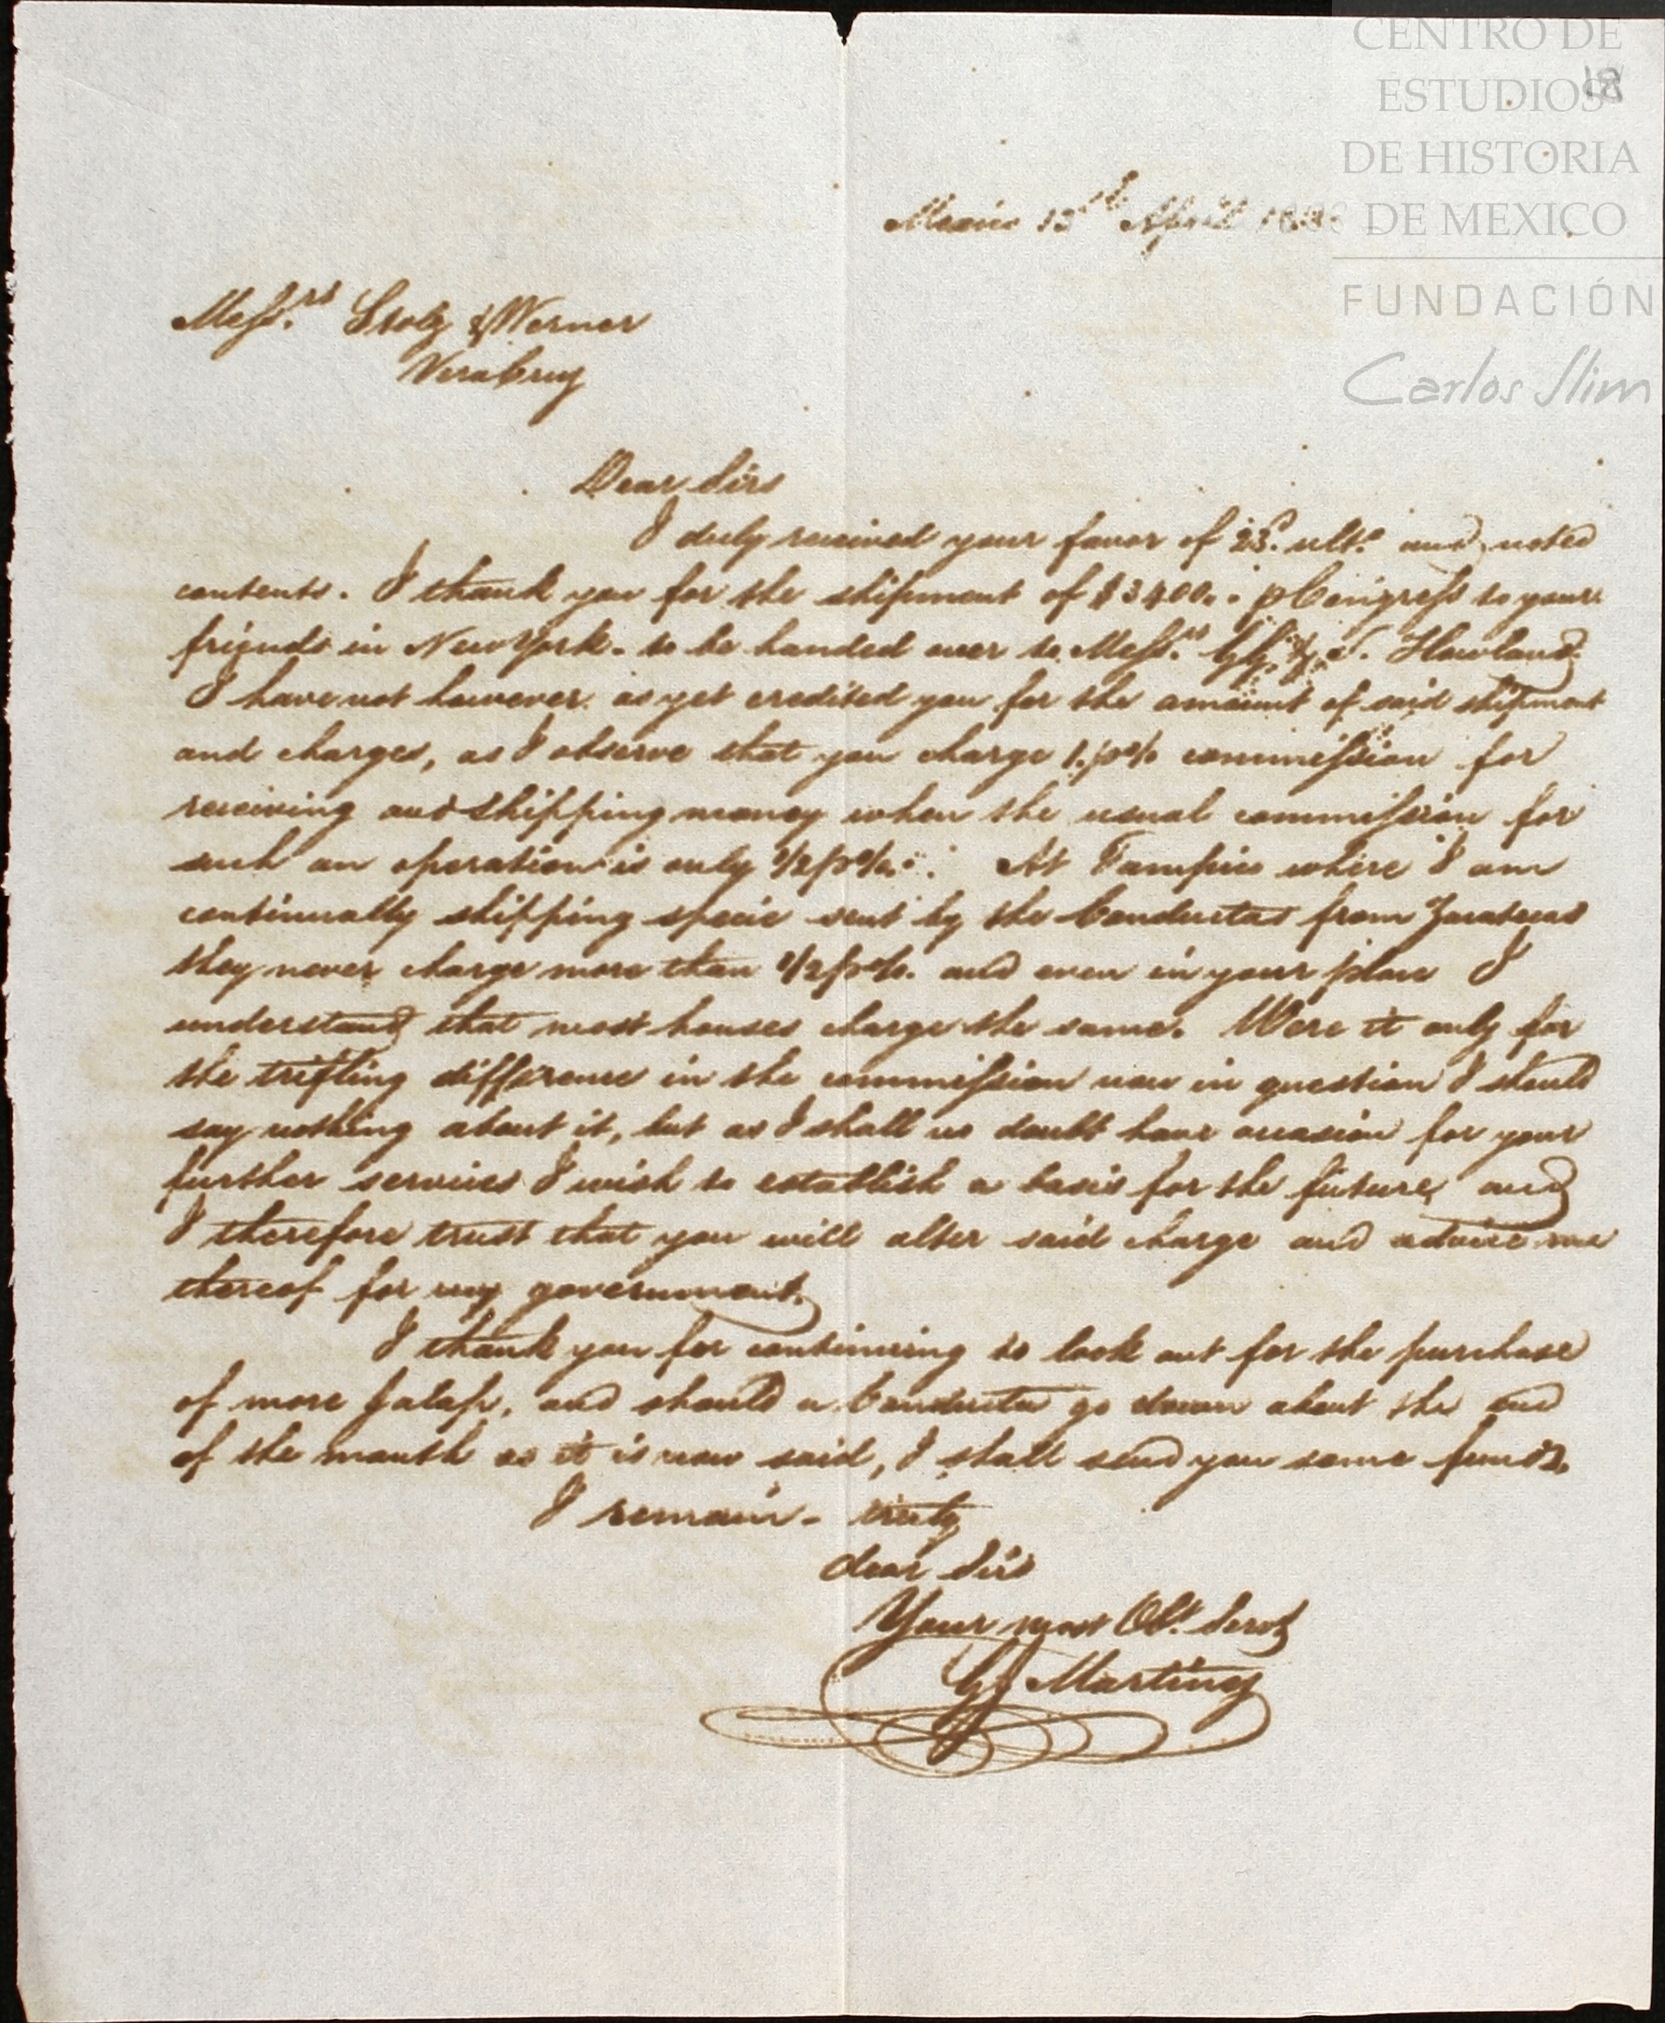 CENTRO DE
ESTUDIOS
DE HISTORIA
DE MEXICO
FUNDACIÓN
Carlos Slim
18
Mexico 13th April
Messrs Stolz & Werner
Veracruz
Dear Sirs
I duly received your favor of 23d. ulto. and noted
contents. I thank you for the shipment of $3400.. p Congress to your
friends in New York - to be handed over to Messrs. G. G. & S. Howland.
I have not however as yet credited you for the amount of said shipment
and charges, as I observe that you charge 1. p% commission for
receiving and shipping money when the usual commission for
such an operation is only 1/2 p%. At Tampico where I am
continually shipping specie sent by the Conductas from Zacatecas
they never charge more than 1/2 p%. and even in your place I
understand that most houses charge the same. Were it only for
the trifling difference in the commission now in question I should
say nothing about it, but as I shall no doubt have occasion for your
further services I wish to establish a basis for the future, and
I therefore trust that you will alter said charge and advise me
thereof for my government.
I thank you for continuing to look out for the purchase
of more Jalap, and should a Conducta go down about the end
of the month as it is now said, I shall send you some funds.
I remain - truly
dear Sirs
Your most Obt. Servt
Martinez